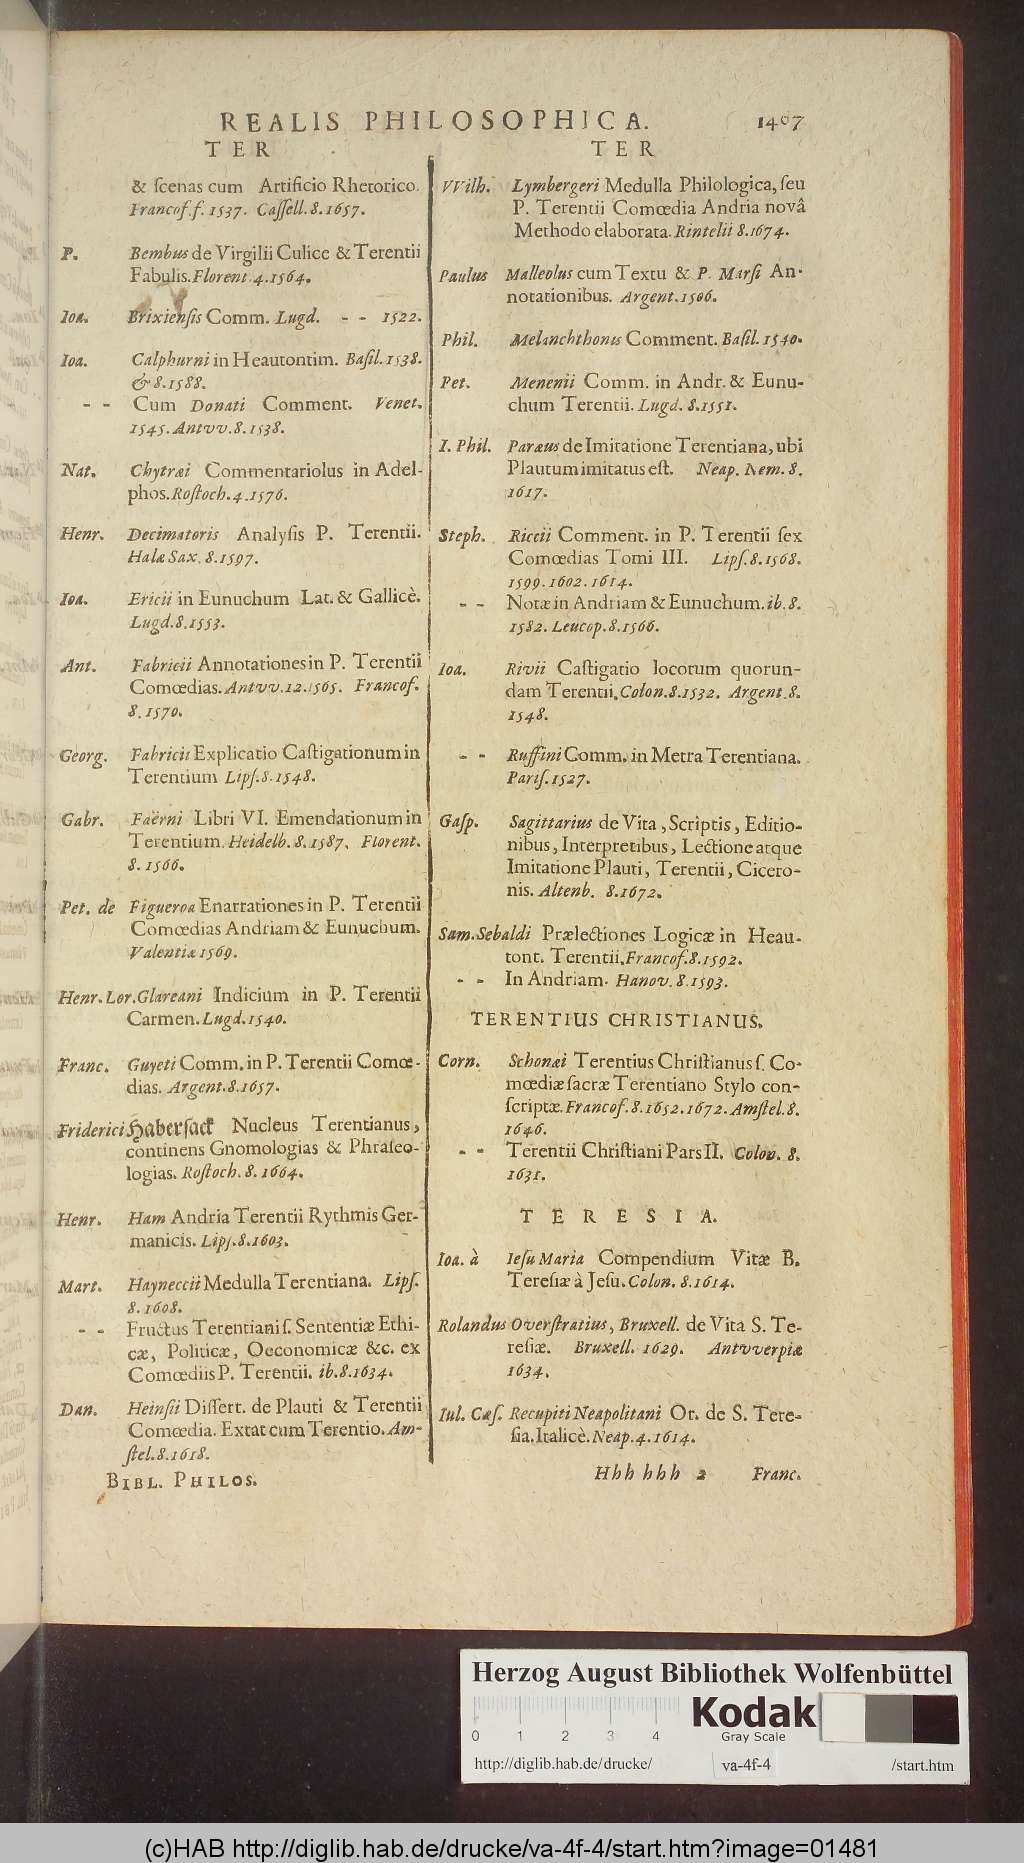 REALIS PHILOSOPHICA. 1407
TER TER
& ſcenas cum Artificio Rhetorico.
Francof.f. 1537. Caſſell. 8. 1657.
P. Bembus de Virgilii Culice & Terentii
Fabulis. Florent. 4. 1564.
Ioa. Brixienſis Comm. Lugd. - - 1522.
Ioa. Calphurni in Heautontim. Baſil. 1538.
& 8. 1588.
- - Cum Donati Comment. Venet.
1545. Antvv. 8. 1538.
Nat. Chytræi Commentariolus in Adel-
phos. Roſtoch. 4. 1576.
Henr. Decimatoris Analyſis P. Terentii.
Halæ Sax. 8. 1597.
Ioa. Ericii in Eunuchum Lat. & Gallicè.
Lugd. 8. 1553.
Ant. Fabricii Annotationes in P. Terentii
Comœdias. Antvv. 12. 1565. Francof.
8. 1570.
Georg. Fabricii Explicatio Caſtigationum in
Terentium Lipſ. 8. 1548.
Gabr. Faërni Libri VI. Emendationum in
Terentium. Heidelb. 8. 1587. Florent.
8. 1566.
Pet. de Figueroa Enarrationes in P. Terentii
Comœdias Andriam & Eunuchum.
Valentiæ 1569.
Henr. Lor. Glareani Indicium in P. Terentii
Carmen. Lugd. 1540.
Franc. Guyeti Comm. in P. Terentii Comœ-
dias. Argent. 8. 1657.
Friderici Haberſack Nucleus Terentianus,
continens Gnomologias & Phraſeo-
logias. Roſtoch. 8. 1664.
Henr. Ham Andria Terentii Rythmis Ger-
manicis. Lipſ. 8. 1603.
Mart. Hayneccii Medulla Terentiana. Lipſ.
8. 1608.
- - Fructus Terentiani ſ. Sententiæ Ethi-
cæ, Politicæ, Oeconomicæ &c. ex
Comœdiis P. Terentii. ib. 8. 1634.
Dan. Heinſii Diſſert. de Plauti & Terentii
Comœdia. Extat cum Terentio. Am-
ſtel. 8. 1618.
BIBL. PHILOS.
VVilh. Lymbergeri Medulla Philologica, ſeu
P. Terentii Comœdia Andria novâ
Methodo elaborata. Rintelii 8. 1674.
Paulus Malleolus cum Textu & P. Marſi An-
notationibus. Argent. 1506.
Phil. Melanchthonis Comment. Baſil. 1540.
Pet. Menenii Comm. in Andr. & Eunu-
chum Terentii. Lugd. 8. 1551.
I. Phil. Paræus de Imitatione Terentiana, ubi
Plautum imitatus eſt. Neap. Nem. 8.
1617.
Steph. Riccii Comment. in P. Terentii ſex
Comœdias Tomi III. Lipſ. 8. 1568.
1599. 1602. 1614.
- - Notæ in Andriam & Eunuchum. ib. 8.
1582. Leucop. 8. 1566.
Ioa. Rivii Caſtigatio locorum quorun-
dam Terentii. Colon. 8. 1532. Argent. 8.
1548.
- - Ruffini Comm. in Metra Terentiana.
Pariſ. 1527.
Gaſp. Sagittarius de Vita, Scriptis, Editio-
nibus, Interpretibus, Lectione atque
Imitatione Plauti, Terentii, Cicero-
nis. Altenb. 8. 1672.
Sam. Sebaldi Prælectiones Logicæ in Heau-
tont. Terentii. Francof. 8. 1592.
- - In Andriam. Hanov. 8. 1593.
TERENTIUS CHRISTIANUS.
Corn. Schonæi Terentius Chriſtianus ſ. Co-
mœdiæ ſacræ Terentiano Stylo con-
ſcriptæ. Francof. 8. 1652. 1672. Amſtel. 8.
1646.
- - Terentii Chriſtiani Pars II. Colon. 8.
1631.
TERESIA.
Ioa. à Ieſu Maria Compendium Vitæ B.
Tereſiæ à Jeſu. Colon. 8. 1614.
Rolandus Overſtratius, Bruxell. de Vita S. Te-
reſiæ. Bruxell. 1629. Antvverpiæ
1634.
Iul. Cæſ. Recupiti Neapolitani Or. de S. Tere-
ſia. Italicè. Neap. 4. 1614.
Hhh hhh 2 Franc.
Herzog August Bibliothek Wolfenbüttel
0 1 2 3 4
Kodak
Gray Scale
http://diglib.hab.de/drucke/ va-4f-4 /start.htm
(c)HAB http://diglib.hab.de/drucke/va-4f-4/start.htm?image=01481